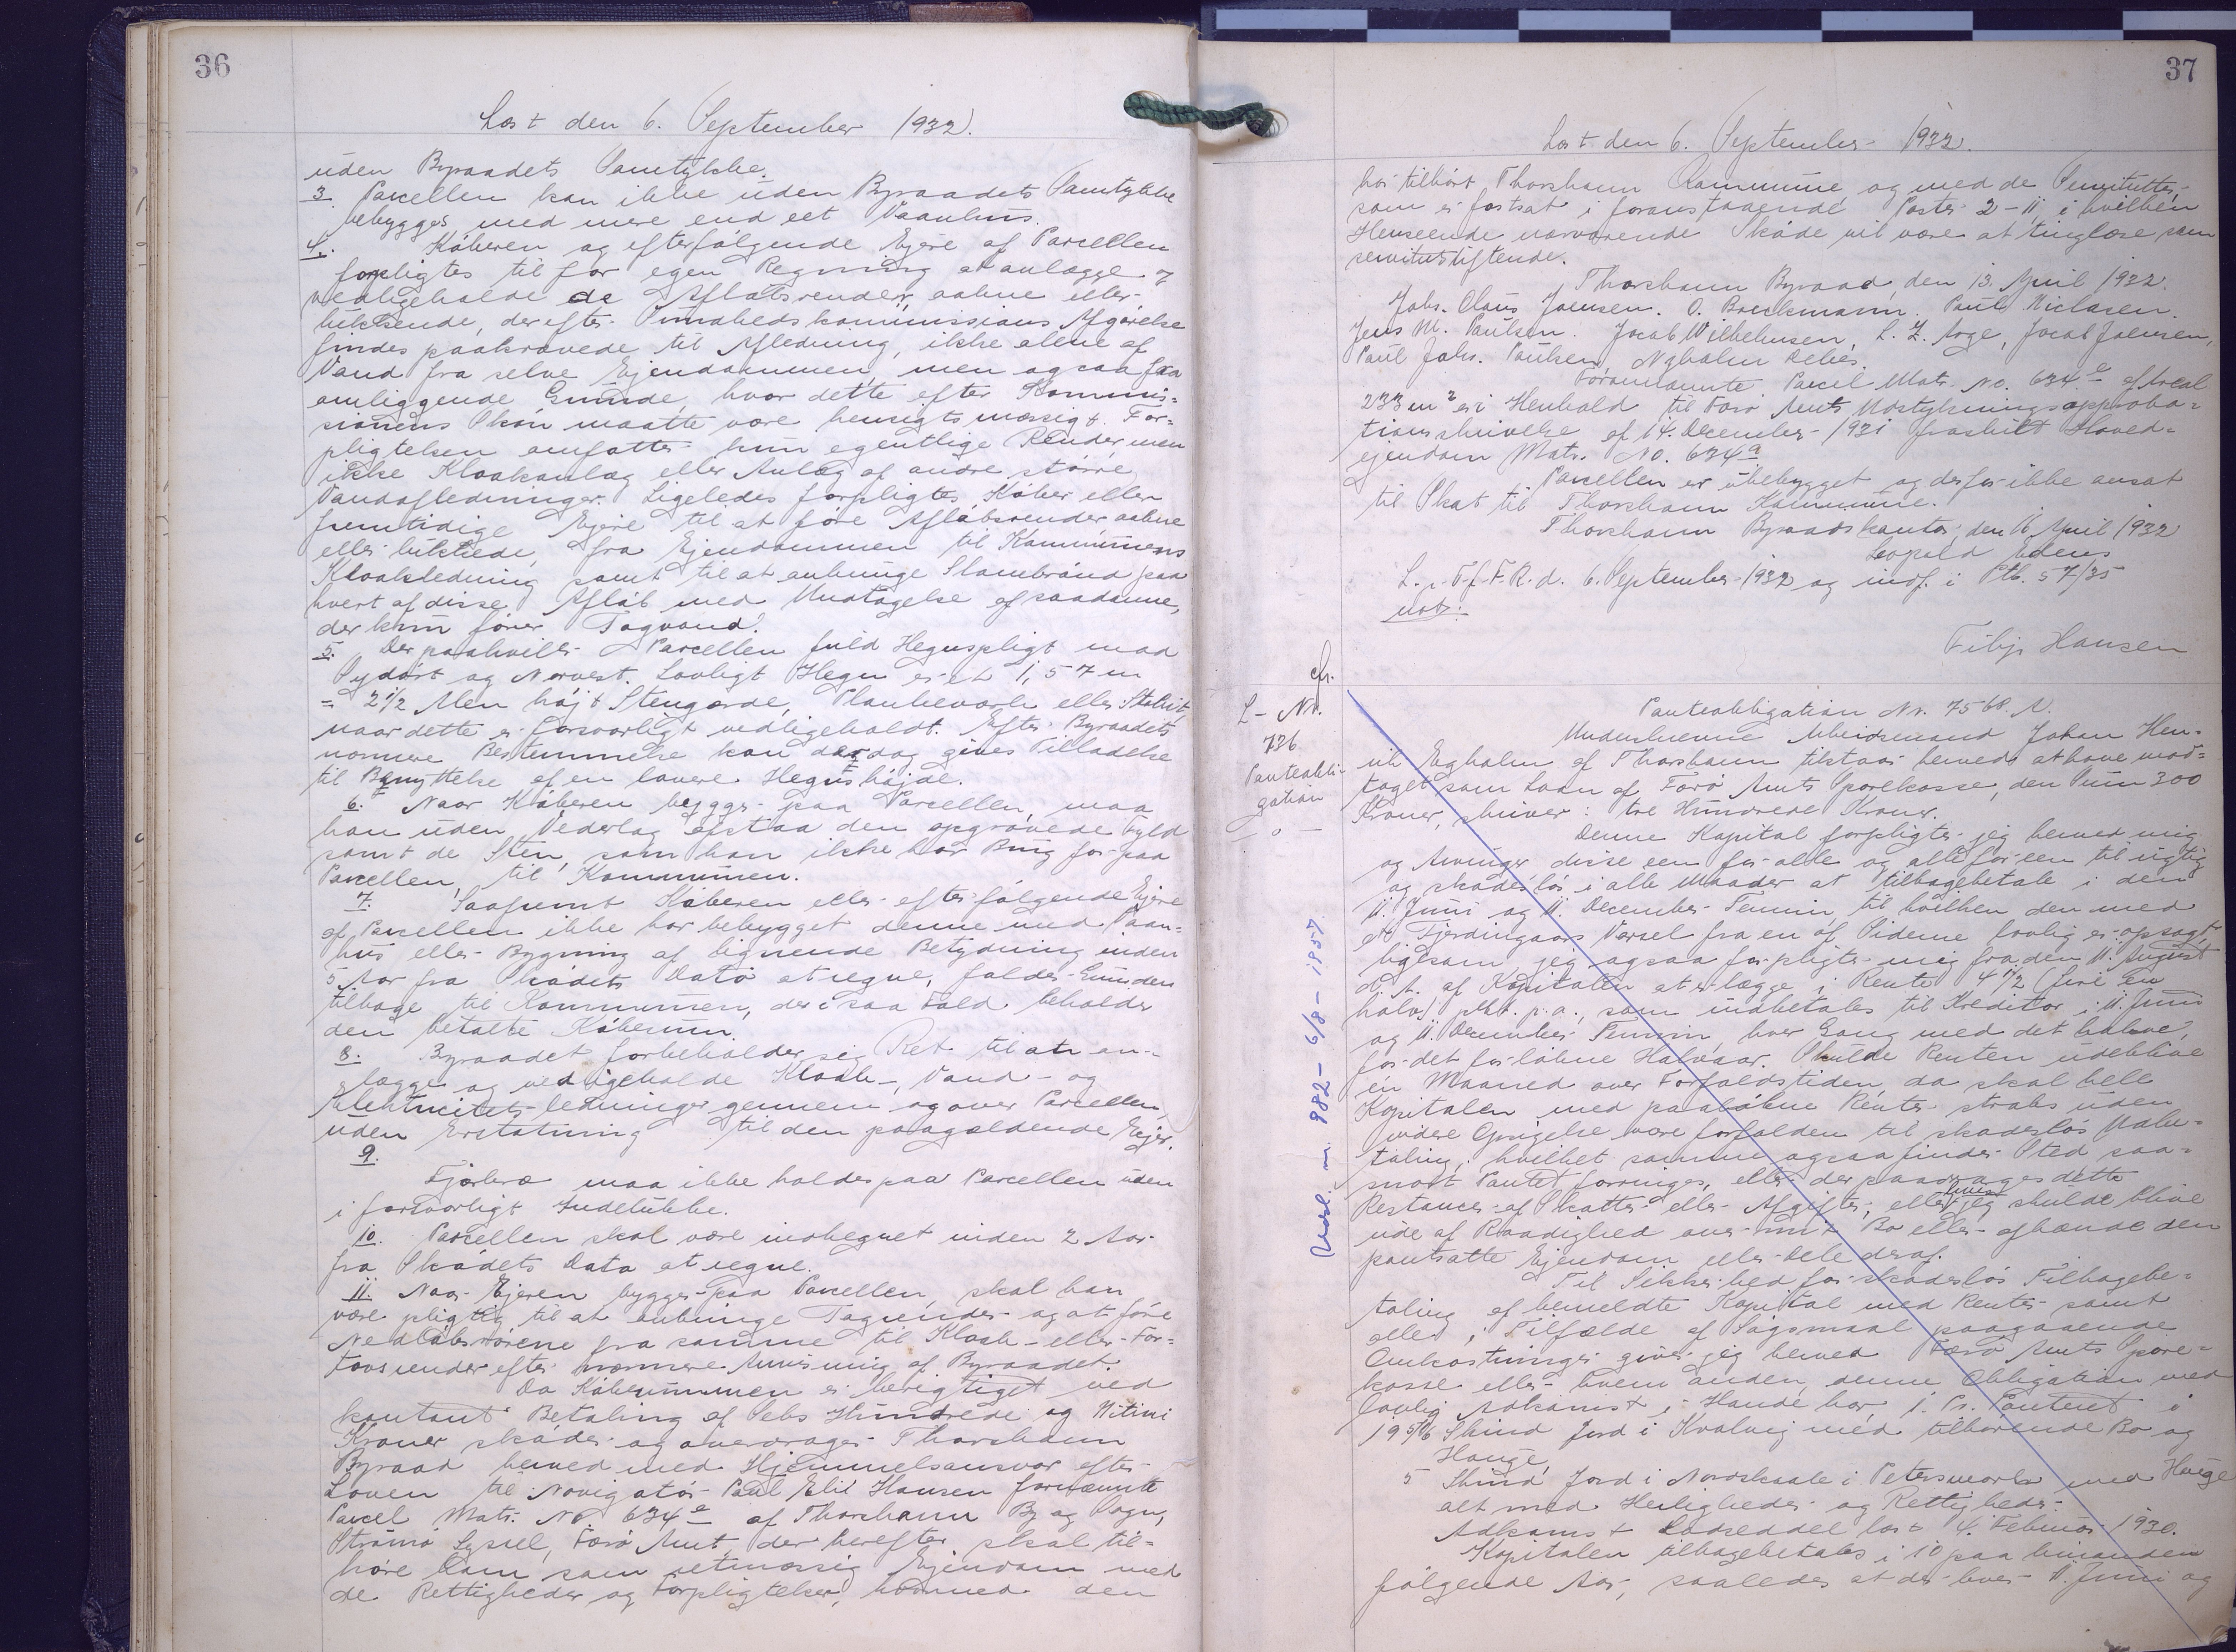 36
Læst den 6. September 1932.
uden Byraadets Samtykke.
3. Parcellen kan ikke uden Byraadets Samtykke
bebygges med mere end eet Vaanhus.
4. Køberen og efterfølgende Ejere af Parcellen
forpligtes til for egen Regning at anlægge og
vedligeholde de Afløbsrender, aabne eller
lukkende, der efter Sundhedskommissions Afgørelse
findes paakrævede til Afledning, ikke alene af
Vand fra selve Ejendommen, men ogsaa fra
omliggende Grunde, hvor dette efter Kommis=
sionens Skøn maatte være hensigtsmæssigt. For=
pligtelsen omfatter kun egentlige Render, men
ikke Kloakanlæg eller Anlæg af andre større
Vandafledninger. Ligeledes forpligtes Køber eller
fremtidige Ejere til at føre Afløbsrender aabne
eller lukkede, fra Ejendommen til Kommunens
Kloakledning samt til at anbringe Slambrønd paa
hvert af disse Afløb med Undtagelse af saadanne,
der kun fører Tagvand.
5. Der paahviler Parcellen fuld Hegnspligt mod
Sydøst og Norvest. Lovligt Hegn er et 1,57 m
= 2 1/2 Alen højt Stengærde, Plankeværk eller Stakit,
naar dette er forsvarligt vedligeholdt. Efter Byraadets
nærmere Bestemmelse kan der dog gives Tilladelse
til Benyttelse af en lavere Hegnshøjde.
6. Naar Køberen bygger paa Parcellen, maa
han uden Vederlag afstaa den opgravede Fyld
samt de Sten, som han ikke har Brug for paa
Parcellen, til Kommunen.
7. Saafremt Køberen eller efterfølgende Ejere
af Parcellen ikke har bebygget denne med Vaan=
hus eller Bygning af lignende Betydning inden
5 Aar fra Skødets Dato at regne, falder Grunden
tilbage til Kommunen, der i saa Fald beholder
den betalte Købesum.
8. Byraadet forbeholder sig Ret til at an-
lægge og vedligeholde Kloak-, Vand- og
Elektricitets-ledninger gennem og over Parcellen,
uden Erstatning til den paagældende Ejer.
9.
Fjerkræ maa ikke holdes paa Parcellen uden
i forsvarligt Indelukke.
10. Parcellen skal være indhegnet inden 2 Aar
fra Skødets Dato at regne.
11. Naar Ejeren bygger paa Parcellen, skal han
være pligtig til at anbringe Tagrender og at føre
Nedløbsrørene fra samme til Kloak- eller For=
tovsrender efter nærmere Anvisning af Byraadet.
Da Købesummen er berigtiget ved
kontant Betaling af Seks Hundrede og Nitini
Kroner skøder og overdrager Thorshavn
Byraad herved med Hjemmelsansvar efter
Loven til Navigatør Paul Elié Hansen fornævnte
Parcel Matr. No. 634e af Thorshavn By og Sogn,
Strømø Syssel, Færø Amt, der herefter skal til=
høre ham som retmæssig Ejendom med
de Rettigheder og Forpligtelser, hvormed den
37
Læst den 6. September 1932.
har tilhørt Thorshavn Kommune og med de Servitutter,
som er fastsat i foranstaaende Poster 2-11, i hvilken
Henseende nærværende Skøde vil være at tinglæse som
servitutstiftende.
Thorshavn Byraad, den 13. April 1932.
Johs. Claus Joensen. O. Brockmann. Paul Niclasen.
Jens M. Paulsen. Jacob Wilhelmsen, L. Z. Arge, Jocob Joensen,
Paul Johs. Paulsen, Nyholm Debes.
Forannævnte Parcel Matr. No. 634e af Areal
233 m² er i Henhold til Færø Amts Udstykningsapproba=
tionsskrivelse af 14. December 1931 fraskilt Hoved=
ejendom Matr. No. 634a.
Parcellen er ubebygget og derfor ikke ansat
til Skat til Thorshavn Kommune.
Thorshavn Byraadskontor, den 16. April 1932
Leopold Adens
L. i. F. f. F. R. d. 6. September 1932 og indf. i Ptb. 57/35
not:
Filip Hansen
cfr.
L-Nr.
736
Panteobli-
gation
- o -
Udsl. nr. 982- 6/8-1957
Panteobligation Nr. 7568. A.
Undertegnede Arbeidsmand Johan Hen=
rik Egholm af Thorshavn tilstaar herved at have mod=
taget som Laan af Færø Amts Sparekasse, den Sum 300
Kroner, skriver: tre Hundrede Kroner.
Denne Kapital forpligter jeg herved mig
og Arvinger disse een for alle og alle for een til rigtig
og skadesløs i alle Maader at tilbagebetale i den
11. Juni og 11. December Termin, til hvilken den med
et Fjerdingaars Varsel fra en af Siderne lovlig er opsagt,
ligesom jeg ogsaa forpligter mig fra den 11. August
d. A. af Kapitalen at erlægge i Rente 4 1/2 (fire En
halv) pCt. p.a., som indbetales til Kreditor i 11. Juni
og 11. December Termin, hver Gang med det halve,
for det forløbne Halvaar. Skulde Renten udeblive
én Maaned over Forfaldstiden, da skal hele
Kapitalen med paaløbne Renter straks uden
videre Opsigelse være forfalden til skadesløs Udbe=
taling, hvilket samme ogsaa finder Sted saa=
snart Pantet forringes, eller der paadrages dette
Restancer af Skatter eller Afgifter, eller hvis jeg skulde blive
ude af Raadighed over mit Bo eller afhænde den
pantsatte Ejendom eller Dele deraf.
Til Sikkerhed for skadesløs Tilbagebe=
taling af bemeldte Kapital med Renter samt
alle, i Tilfælde af Søgsmaal paagaaende
Omkostninger giver jeg herved Færø Amts Spare=
kasse eller hvem anden, denne Obligation med
lovlig Adkomst i Hænde har 1. Pr. Panteret i
19 5/16 Skind Jord i Kvalvig med tilhørende Bø og
Hauge,
5 Skind Jord i Nordskaale i Petersmørk med Hauge
alt med Herligheder og Rettigheder.
Adkomst Lodseddel læst 4. Februar 1930.
Kapitalen tilbagebetales i 10 paa hinanden
følgende Aar, saaledes at der hver 11. Juni og